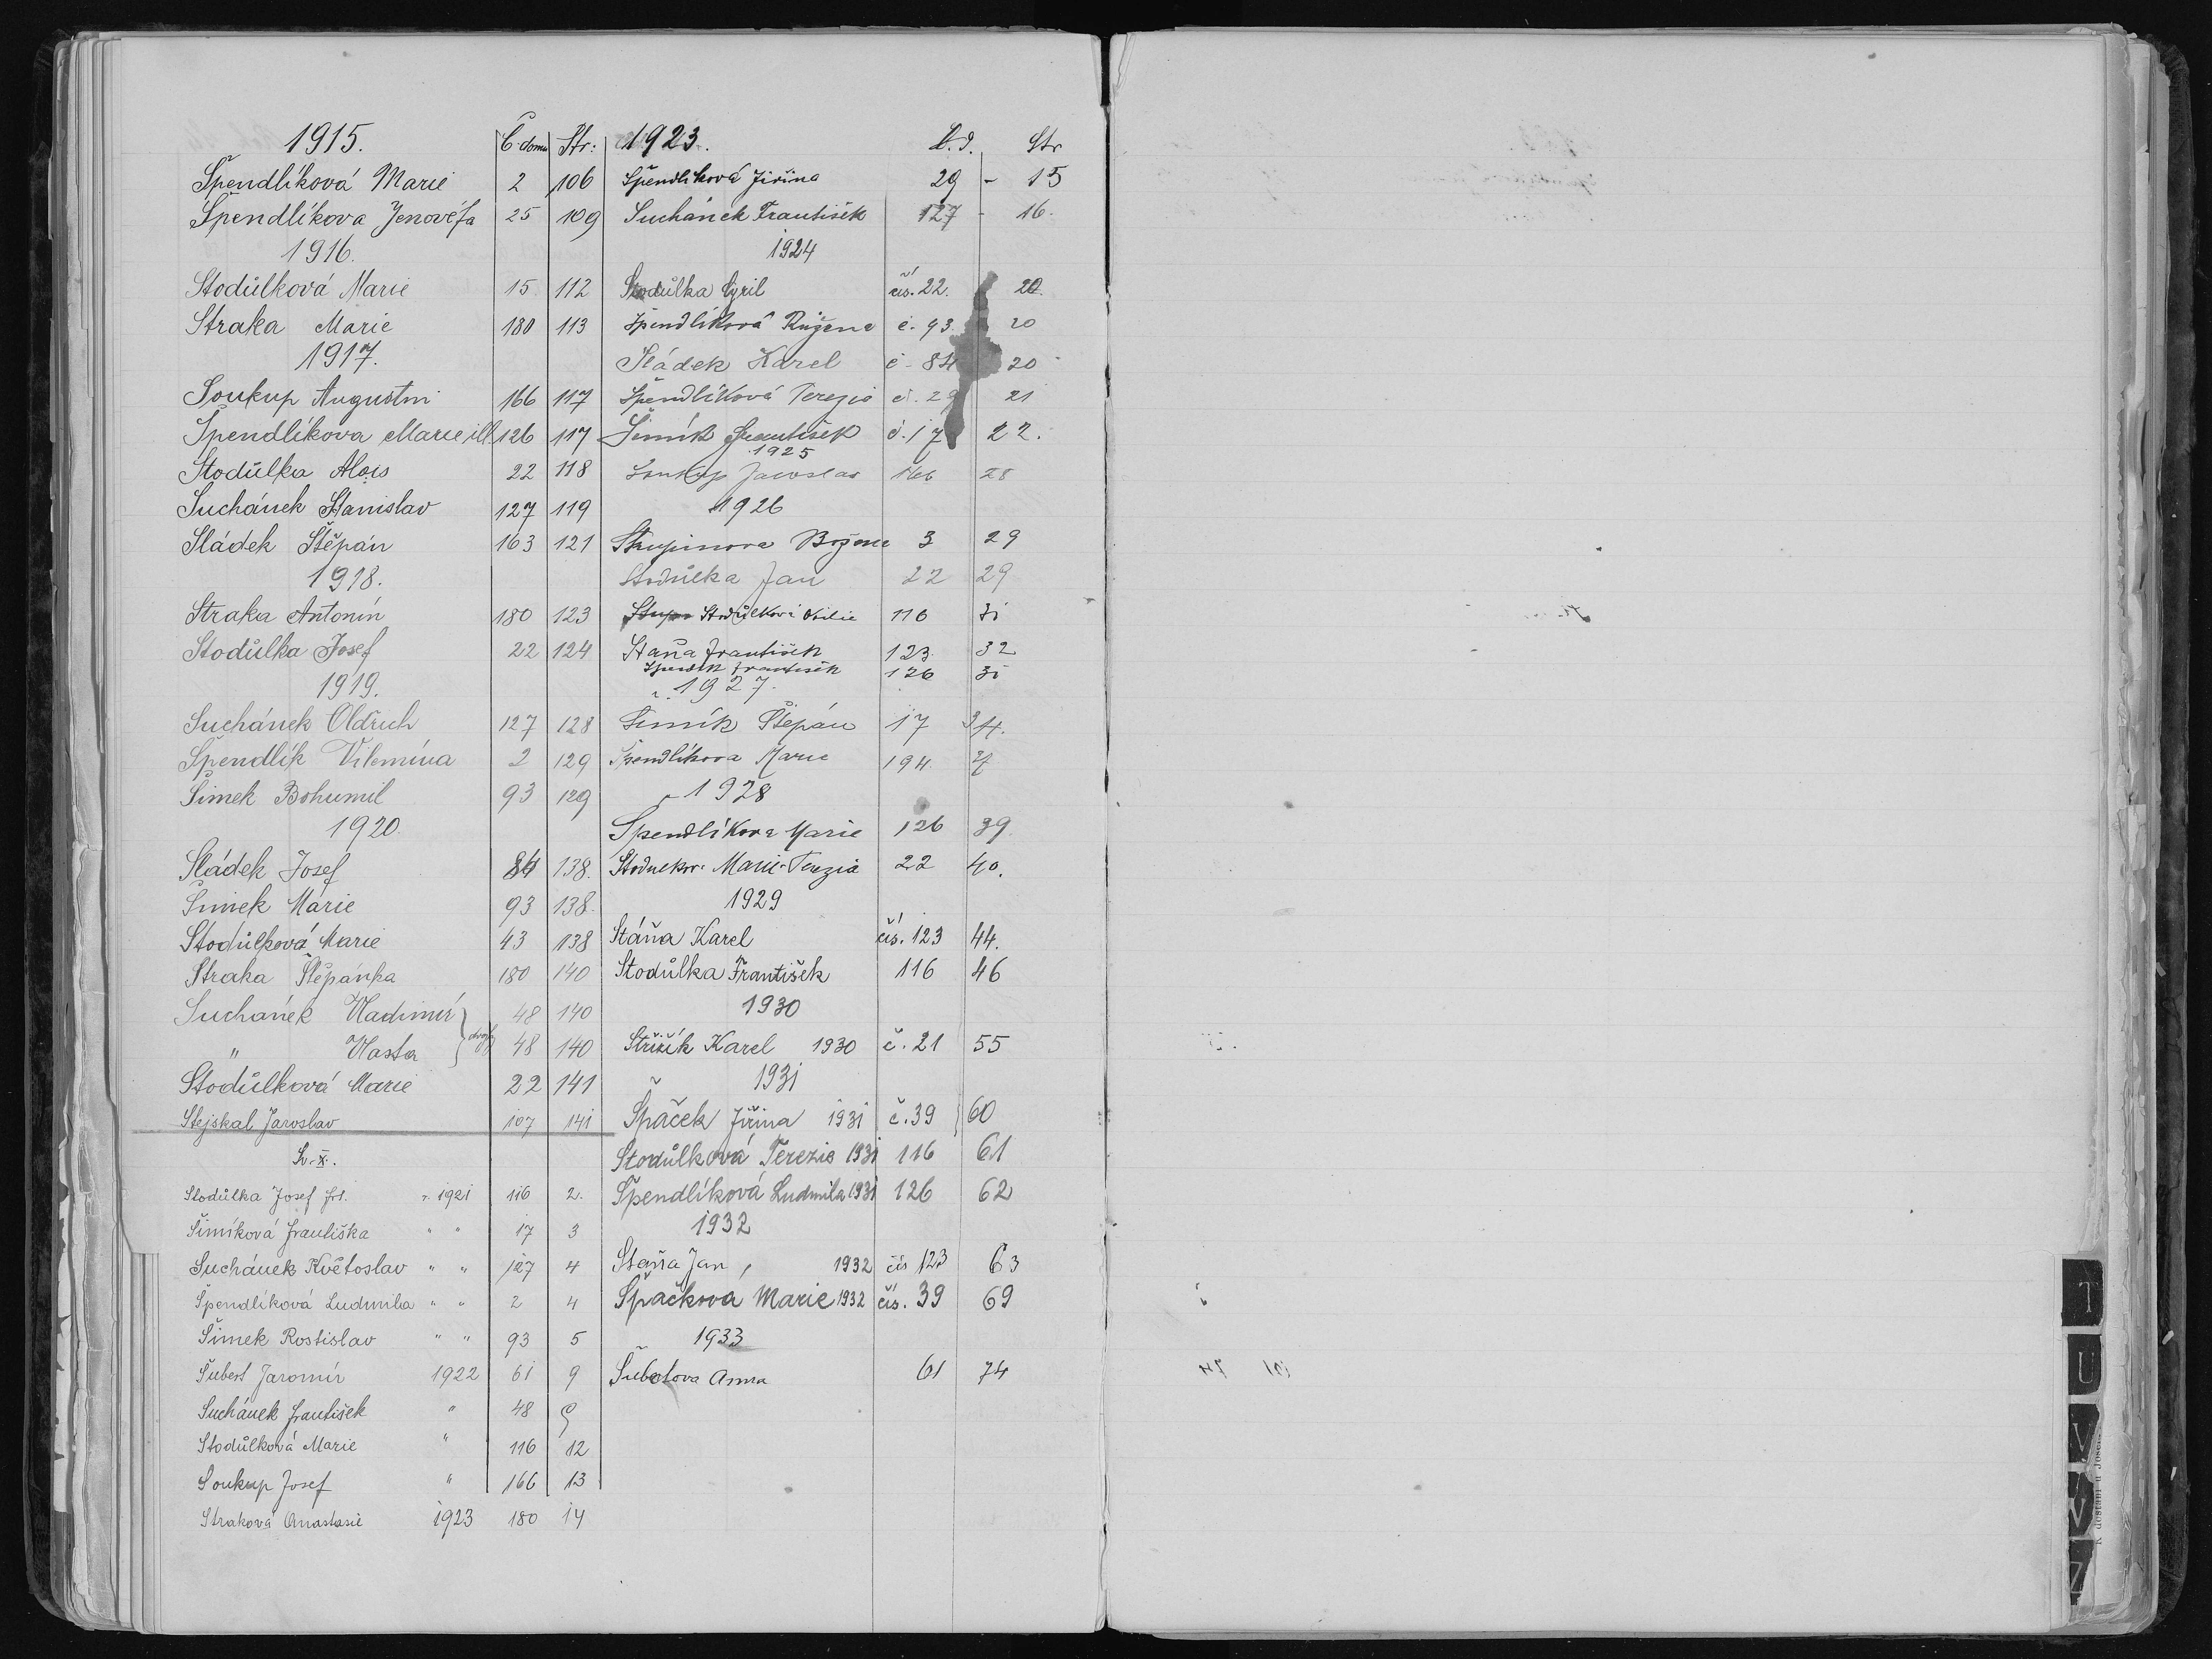 1915. Č. domu Str:
Špendlíková Marie 2 106
Špendlíkova Jenovéfa 25 109
1916.
Stodůlková Marie 15 112
Straka Marie 180 113
1917.
Soukup Augustin 166 117
Špendlíkova Marie ill. 126 117
Stodůlka Alois 22 118
Suchánek Stanislav 127 119
Sládek Štěpán 163 121
1918.
Straka Antonín 180 123
Stodůlka Josef 22 124
1919.
Suchánek Oldřich 127 128
Špendlík Vilemína 2 129
Šimek Bohumil 93 129
1920.
Sládek Josef 84 138.
Šimek Marie 93 138.
Stodůlková Marie 43 138
Straka Štěpánka 180 140
Suchánek Vladimír 48 140
" Vlasta 48 140
Stodůlková Marie 22 141
Stejskal Jaroslav 107 141
Sv. X.
Stodůlka Josef frt. r. 1921 116 2.
Šimíková Františka " " 17 3
Suchánek Květoslav " " 127 4
Špendlíková Ludmila " " 2 4
Šimek Rostislav " " 93 5
Šubert Jaromír 1922 61 9
Suchánek František " 48 9
Stodůlková Marie " 116 12
Soukup Josef " 166 13
Straková Anastasie 1923 180 14
1923. Č.d. Str
Špendlíková Jiřina 29 - 15
Suchánek František 127 - 16.
1924
Stodůlka Cyril čís. 22. 20.
Špendlíková Růžena č. 93. 20
Sládek Karel č. 84 20
Špendlíková Terezie č. 29 21
Šimík František č. 17 22.
1925
Soukup Jaroslav 166 28
1926
Strupinova Božena 3 29
Stodůlka Jan 22 29
Stodůlková 116 31
Staňa František 123 32
Špendlík František 126 31
r. 1927.
Šimík Štěpán 17 34.
Špendlíkova Marie 194.
1928
Špendlíkova Marie 126 39.
Marie Terezia 22 40.
1929
Stáňa Karel čís. 123 44.
Stodůlka František 116 46
1930
Střižík Karel 1930 č. 21 55
1931
Špaček Jiřina 1931 č. 39 60
Stodůlková Terezie 1931 116 61
Špendlíková Ludmila 1931 126 62
1932
Staňa Jan, 1932 čís 123 63
Špačková Marie 1932 čís. 39 69
1933
Šubrtova Anna 61 74
T
U
V
V
Z
K dostání u Josefa